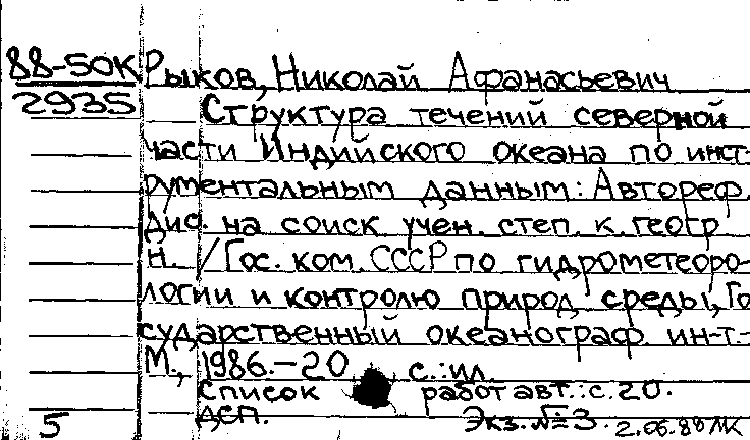 88-50К Рыков, Николай Афанасьевич
2935 Структура течений северной
части Индийского океана по инст-
рументальным данным: Автореф.
дис. на соиск учен. степ. к. геогр
н. / Гос. ком. СССР по гидрометеоро-
логии и контролю природ. среды, Го
сударственный океанограф. ин-т.-
М., 1986.-20 с.:ил.
Список работ авт.: с.20.
ДСП. Экз. № 3.
5 2.06.88